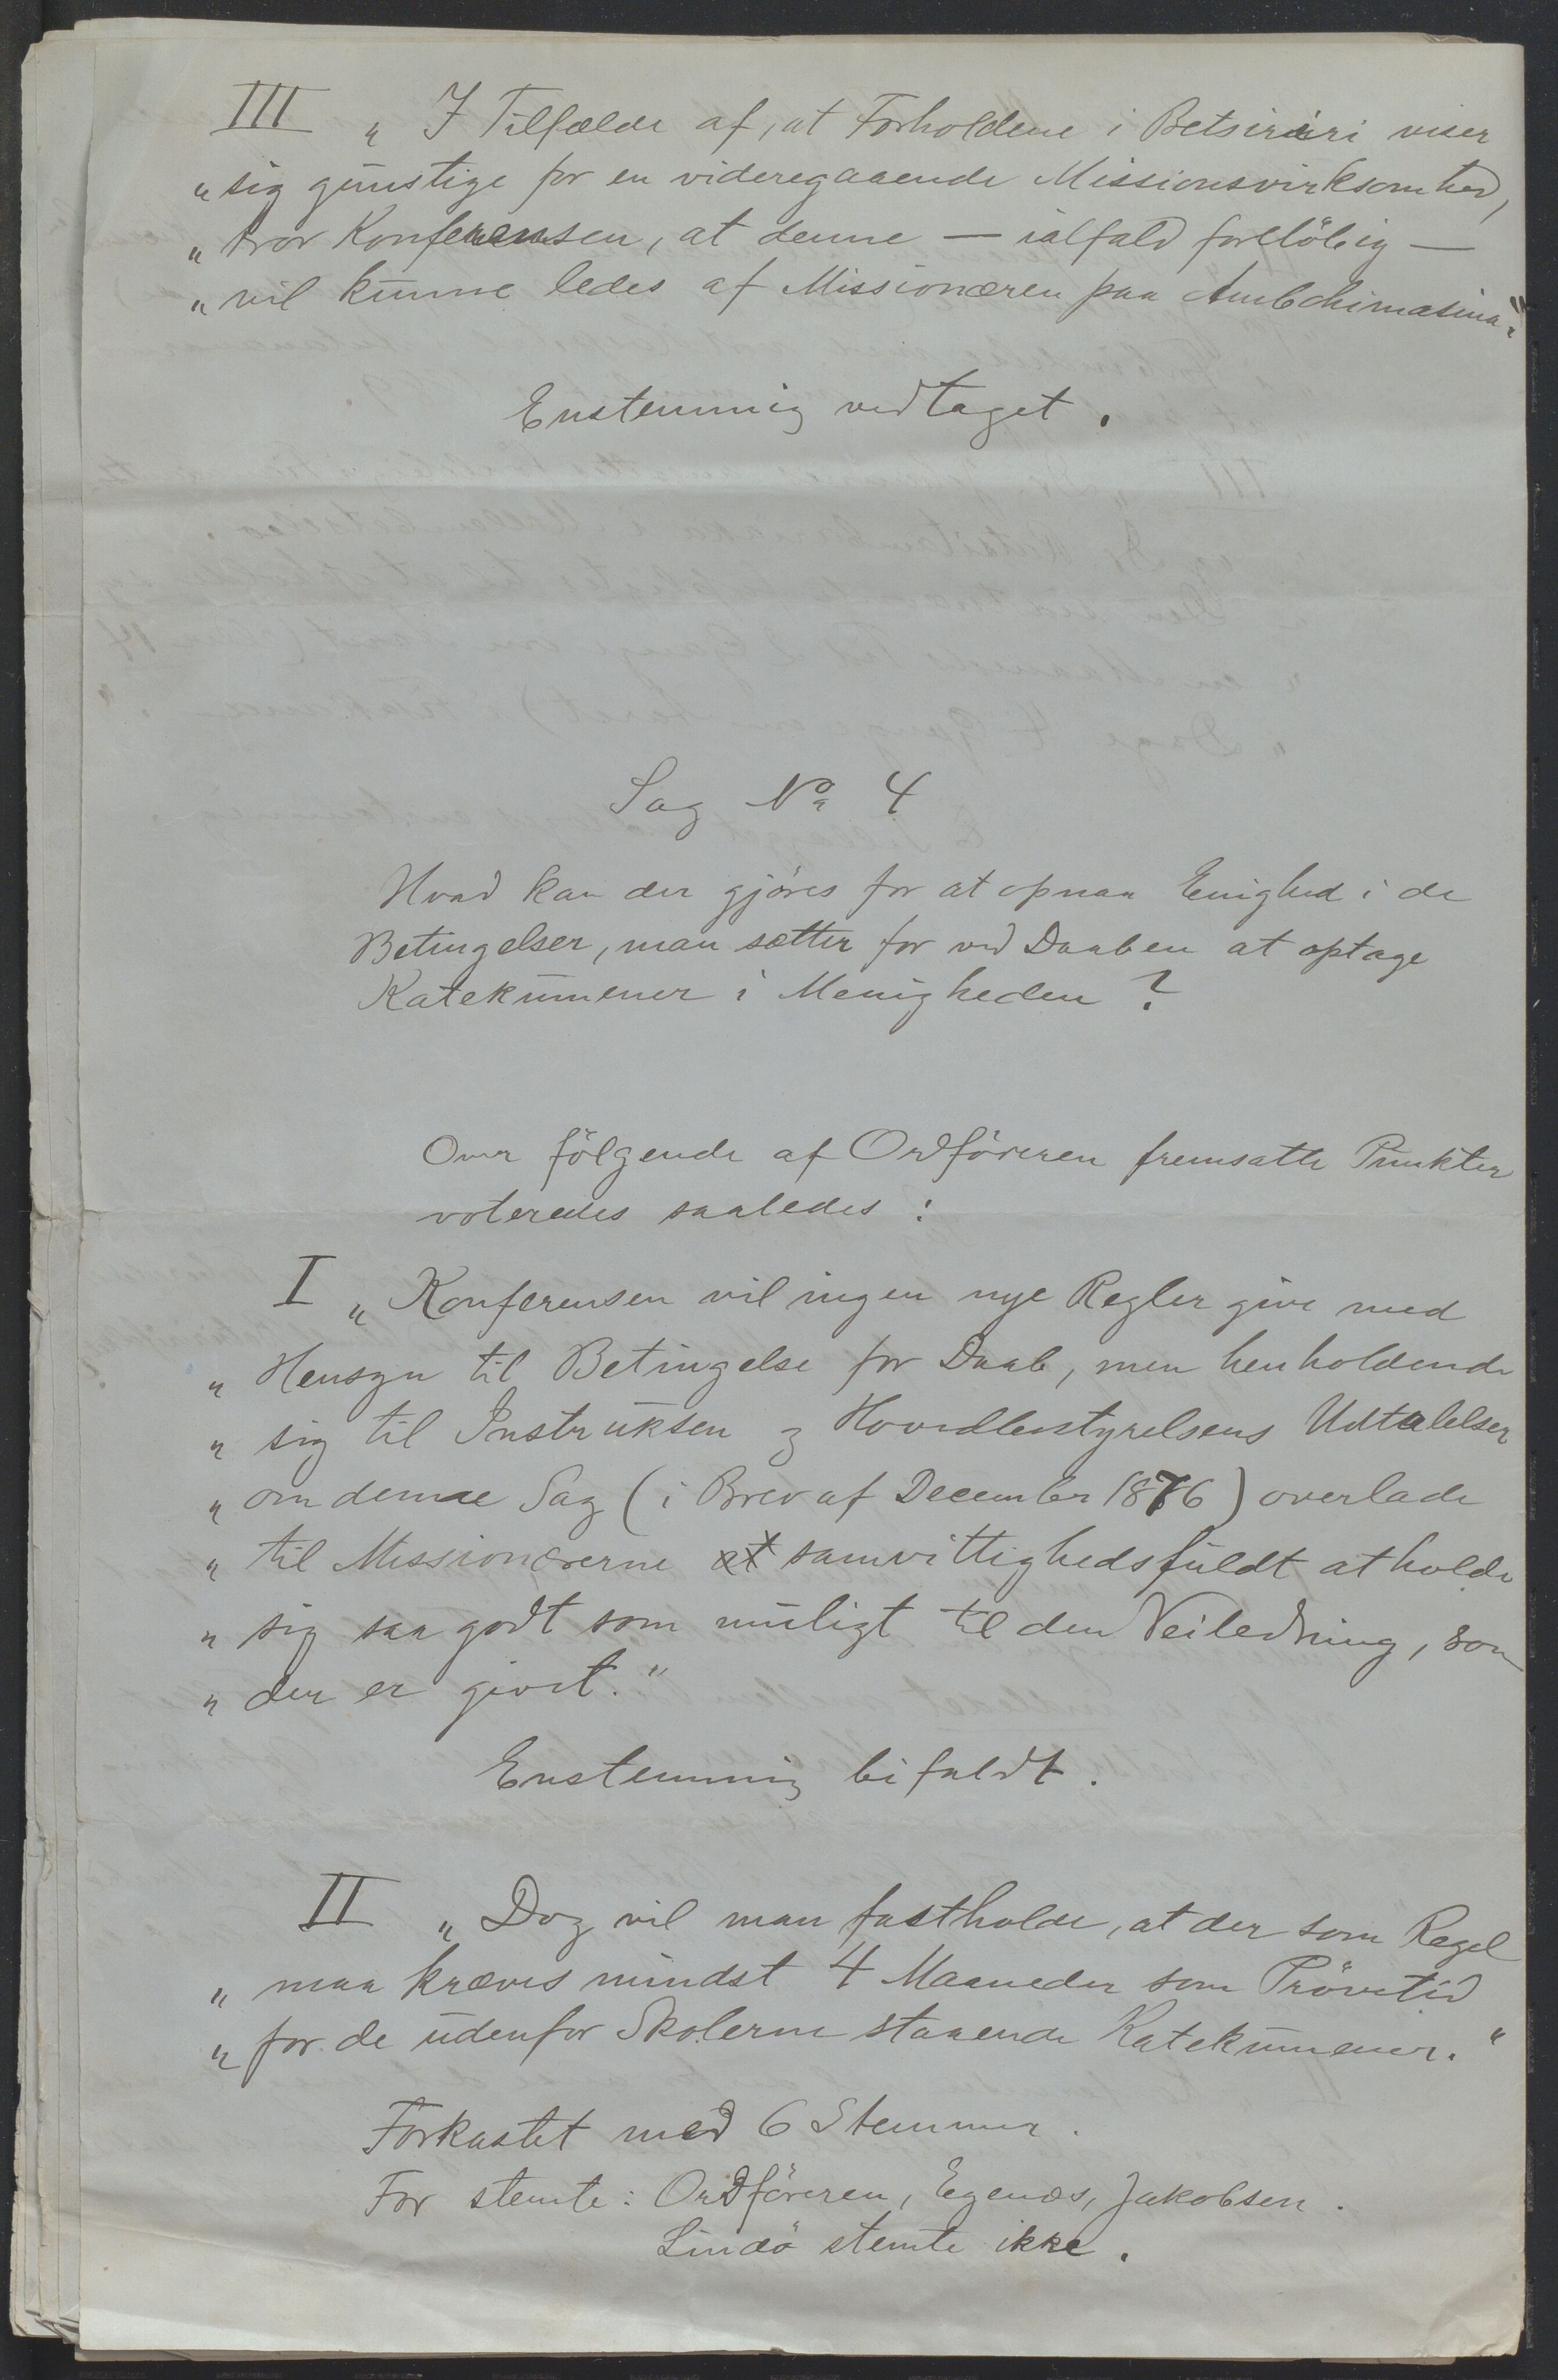 III „ I Tilfælde af, at Forholdene i Betsiriri viser
„ sig gunstige for en videregaaende Missionsvirksomhed,
„ tror Konferensen, at denne — ialfald forelöbig —
„ vil kunne ledes af Missionæren paa Ambohimasina."
Enstemmig vedtaget.
Sag No 4
Hvad kan der gjöres for at opnaa Enighed i de
Betingelser, man sætter for ved Daaben at optage
Katekumener i Menigheden?
Over fölgende af Ordföreren fremsatte Punkter
voteredes saaledes:
I „ Konferensen vil ingen nye Regler give med
„ Hensyn til Betingelse for Daab, men henholdende
„ sig til Instruksen og Hovedbestyrelsens Udtalelser
„ om denne Sag (i Brev af December 1876) overlade
„ til Missionærerne at samvittighedsfuldt at holde
„ sig saa godt som muligt til den Veiledning, som
„ der er givet."
Enstemmig bifaldt.
II „ Dog vil man fastholde, at der som Regel
„ maa kræves mindst 4 Maaneder som Prövetid
„ for de udenfor Skolerne staaende Katekumener."
Forkastet med 6 Stemmer.
For stemte: Ordföreren, Egenæs, Jakobsen.
Lindö stemte ikke.